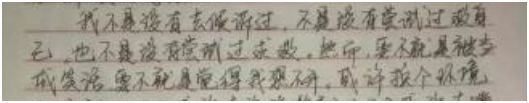 我不是没有去倾诉过,不是没有尝试过救自
己,也不是没有尝试过求救。然而,要不就是被当
成笑话,要不就是觉得我想不开,或许换个环境